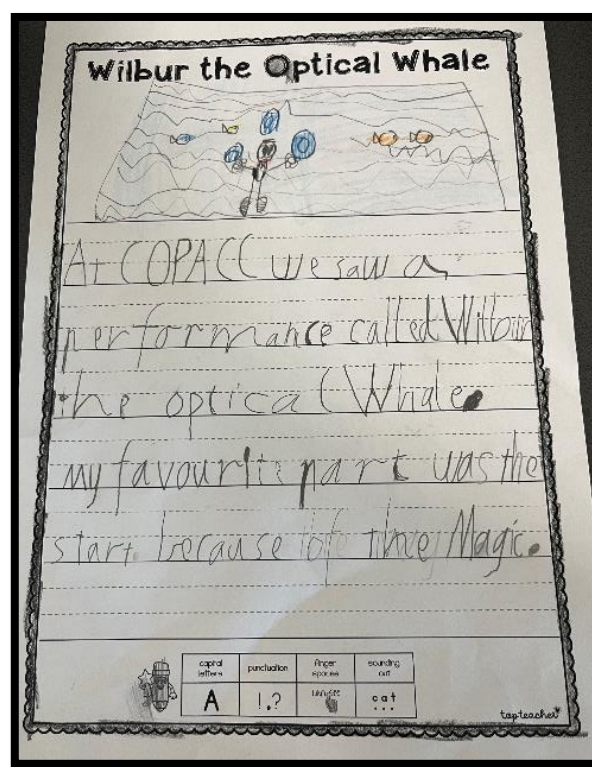 Wilbur the Optical Whale
At COPACC we saw a
performance called Wilbur
the optical Whale.
my favourite part was the
start because of the Magic.
capital letters punctuation finger spaces sounding out
A !.? cat
topteacher